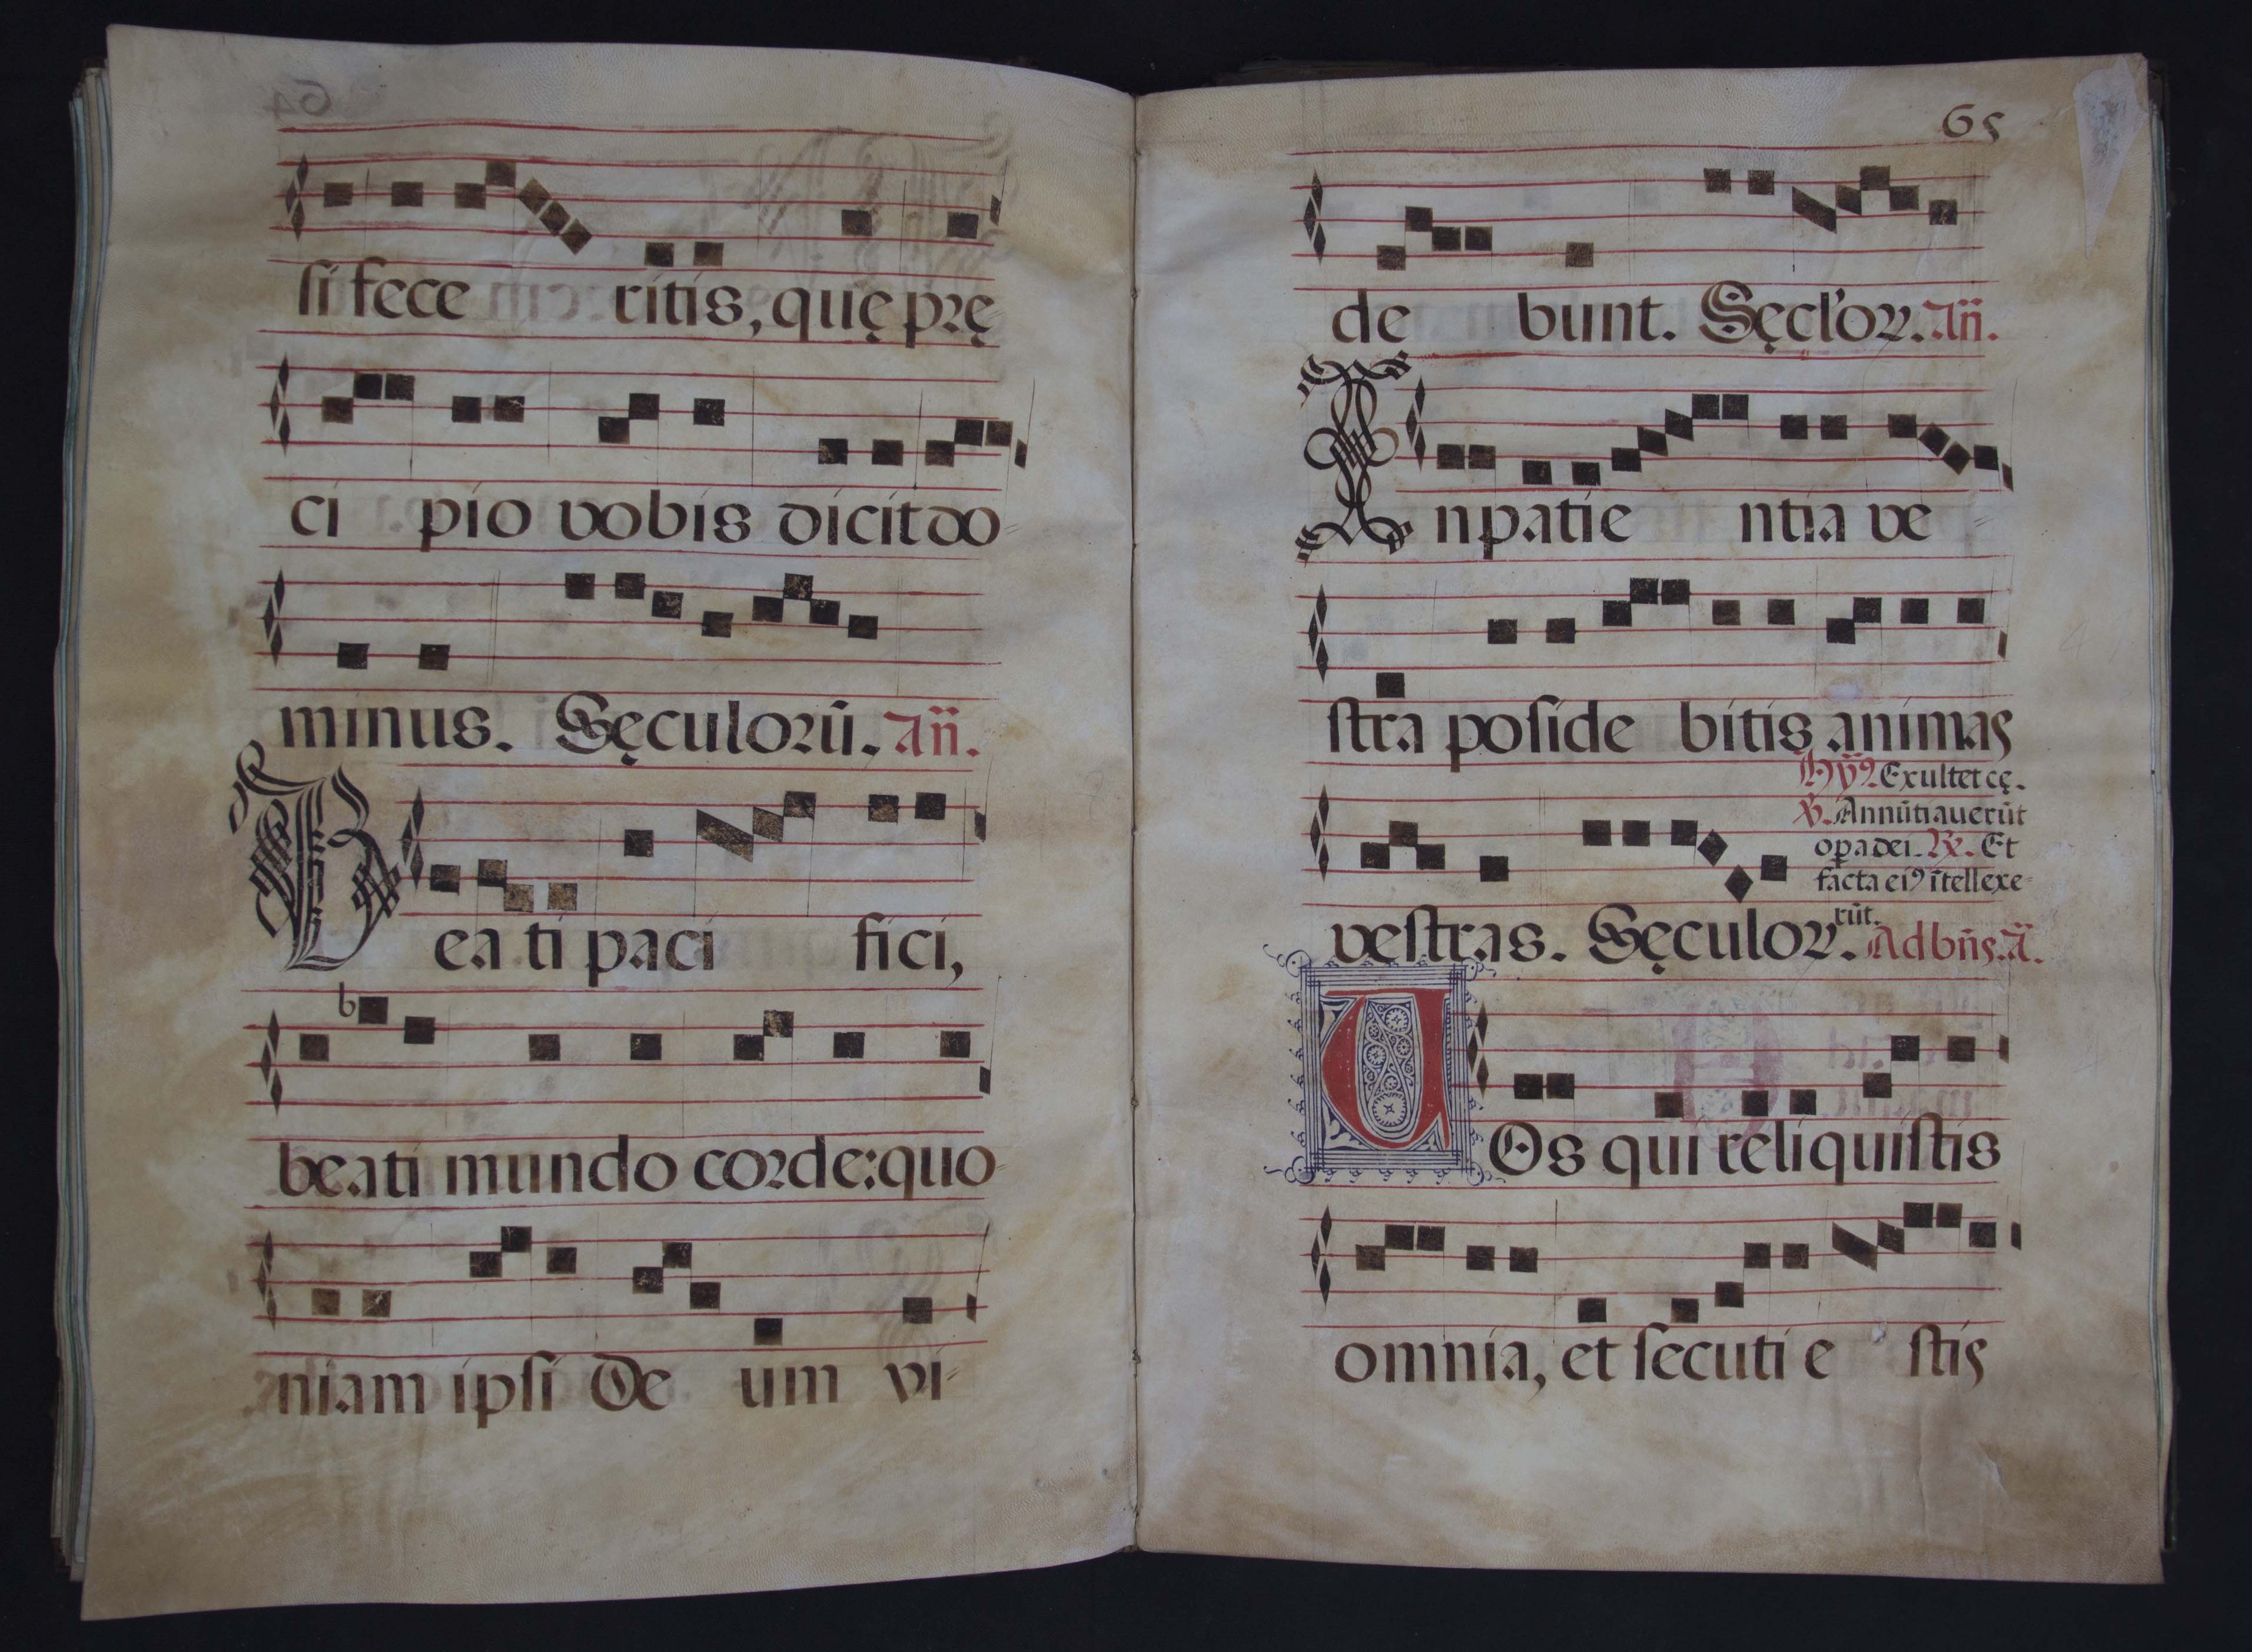 si fece ritis, quę prę-
ci pio vobis dicit do-
minus. Sęculorū. Añ.
Bea ti paci fici,
b
beati mundo corde: quo-
niam ipsi De um vi-
65
de bunt. Sęcl'oꝝ. Añ.
In patie ntia ve-
stra poside bitis animas
Hỹꝰ. Exultet cę.
℣. Annūtiauerūt
oꝑa dei. ℟. Et
facta eiꝰ ītellexe-
rūt.
vestras. Sęculoꝝ. Ad bñs. ã.
VOs qui reliquistis
omnia, et secuti e stis